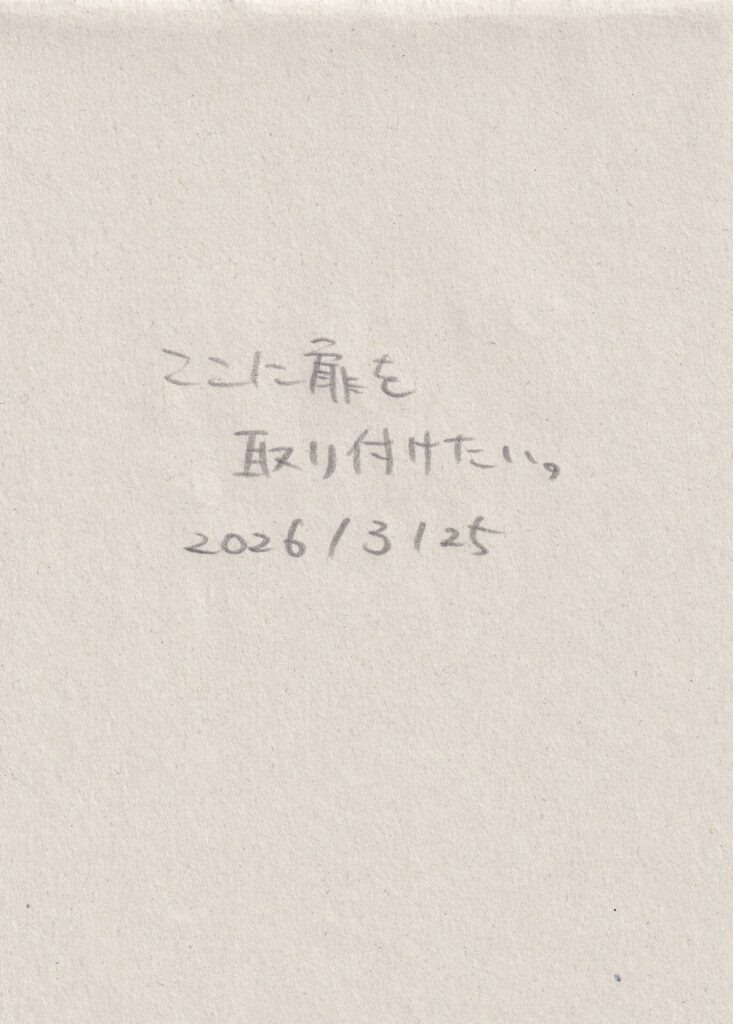 ここに扉を
取り付けたい。
2026/3/25